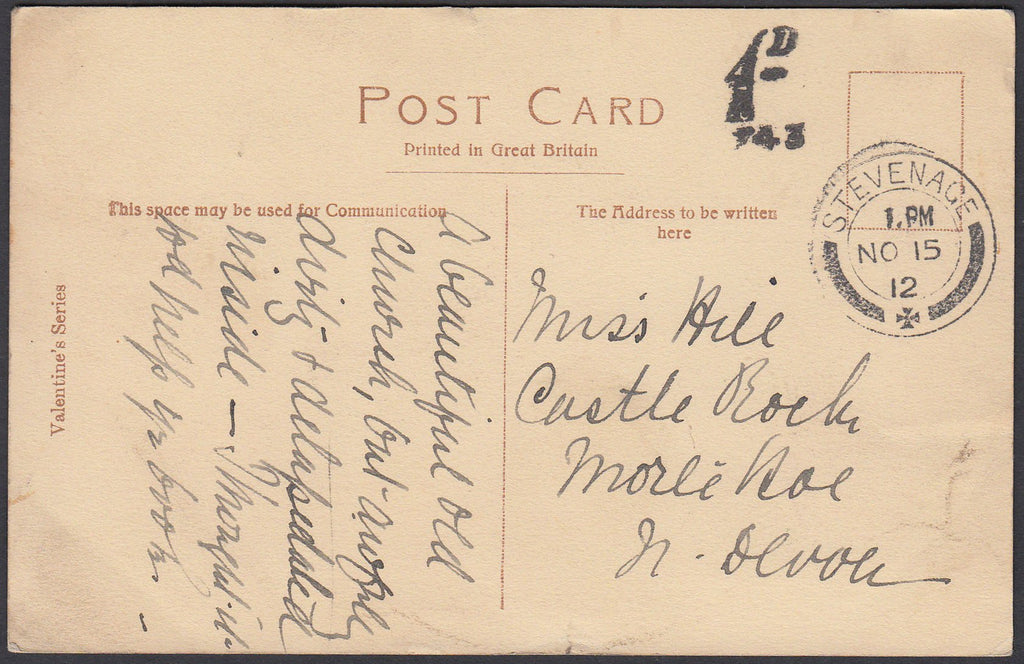 POST CARD
Printed in Great Britain
This space may be used for Communication
The Address to be written
here
Valentine's Series
1D
743
STEVENAGE
1. PM
NO 15
12
A beautiful old
Church, but awfully
dirty & delapedated
inside — Thought it
wd help yr book.
Miss Hill
Castle Rock
Morte Hoe
N. Devon